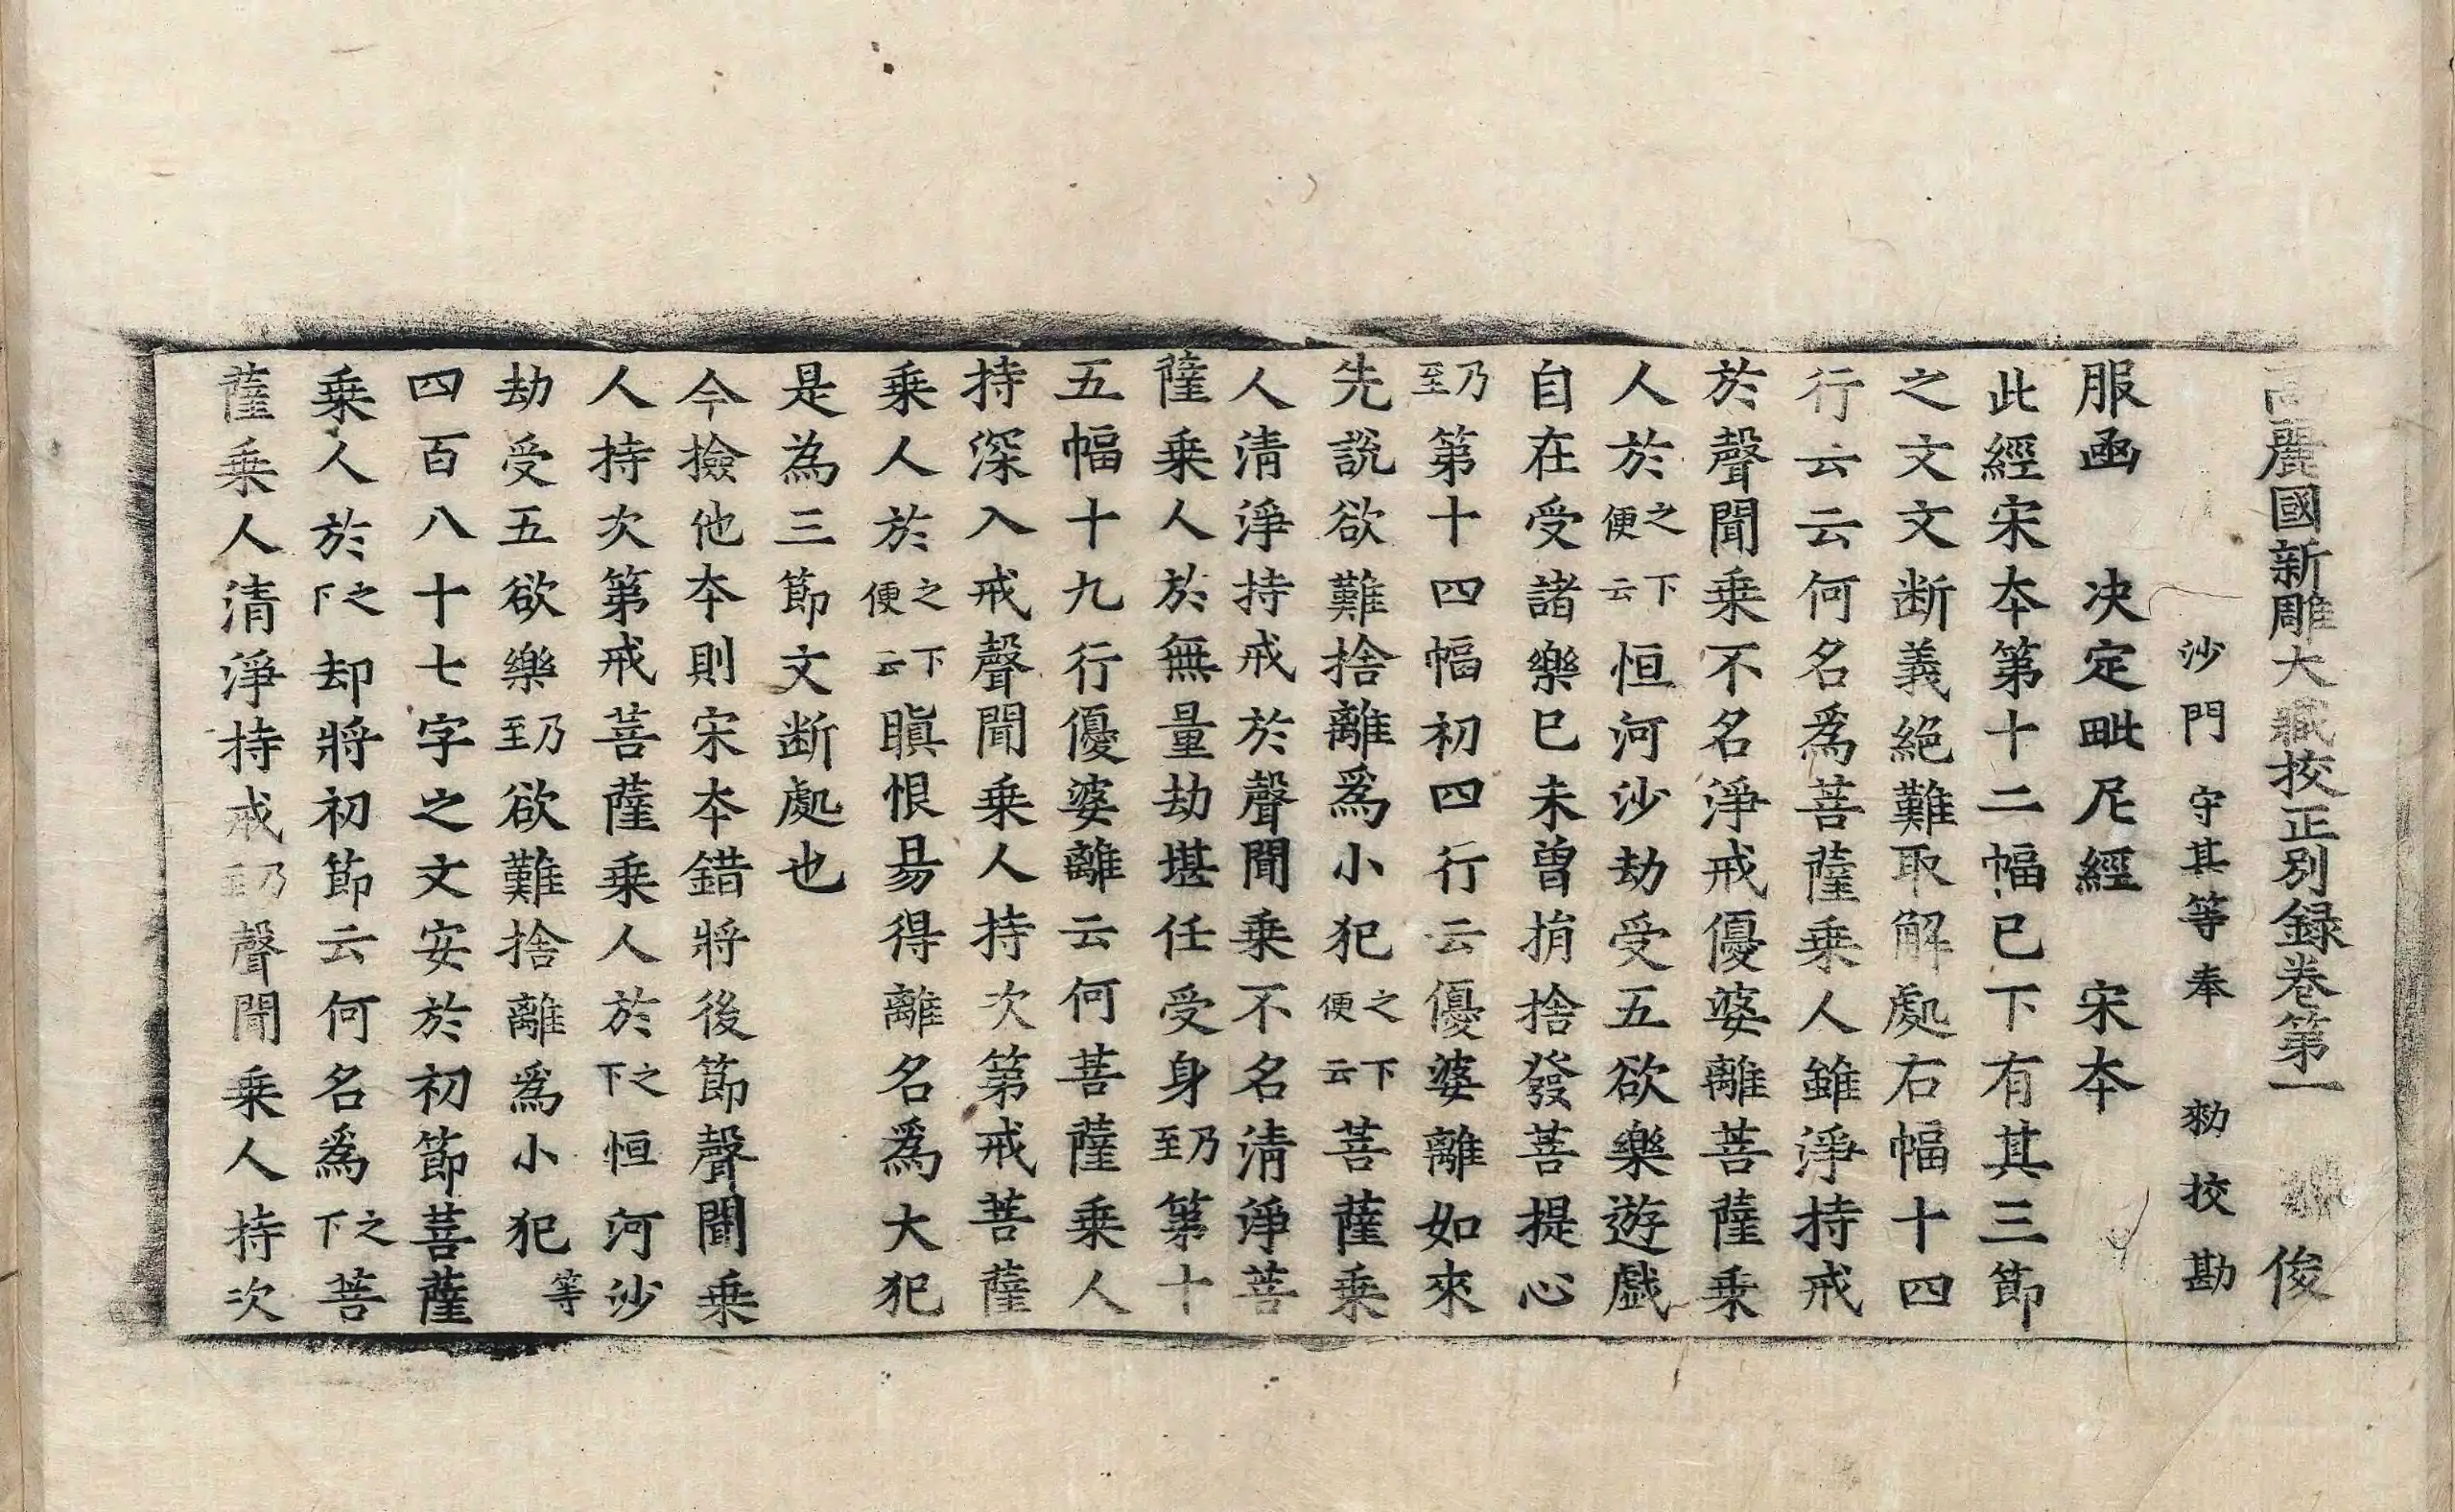 高麗國新雕大藏挍正別録卷第一 俊
沙門 守其等奉 勑挍勘
服函 決定毗尼經 宋夲
此經宋夲第十二幅已下有其三節
之文文断義絕難取解處右幅十四
行云云何名爲菩薩乗人雖淨持戒
於聲聞乗不名淨戒優婆離菩薩乗
人於之便下云恒河沙劫受五欲樂遊戯
自在受諸樂已未曾捐捨發菩提心
乃至第十四幅初四行云優婆離如來
先說欲難捨離爲小犯之便下云菩薩乗
人清淨持戒於聲聞乗不名清淨菩
薩乗人於無量劫堪任受身乃至第十
五幅十九行優婆離云何菩薩乗人
持深入戒聲聞乗人持次第戒菩薩
乗人於之便下云瞋恨易得離名爲大犯
是為三節文断處也
今撿他夲則宋夲錯將後節聲聞乗
人持次第戒菩薩乗人於之下恒河沙
劫受五欲樂乃至欲難捨離爲小犯等
四百八十七字之文安於初節菩薩
乗人於之下却將初節云何名爲之下菩
薩乗人清淨持戒乃至聲聞乗人持次